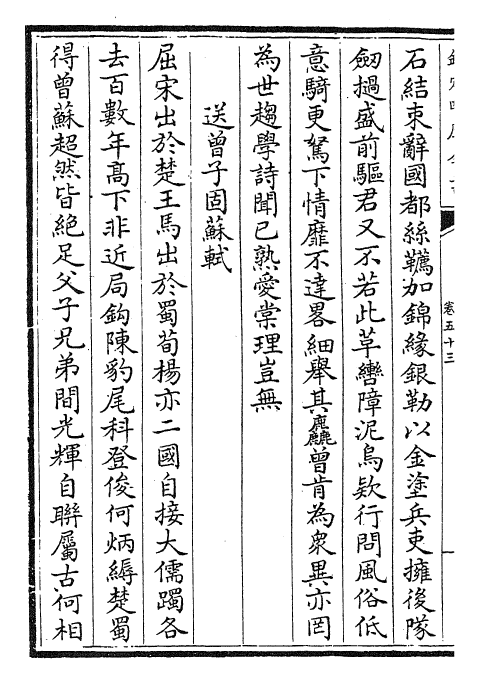 卷五十三
石結束辭國都絲韉加錦緣銀勒以金塗兵吏擁後隊
劒撾盛前驅君又不若此革轡障泥烏欵行問風俗低
意騎更駑下情靡不達畧細舉其麤曾肯為衆異亦罔
為世趨學詩聞已熟愛棠理豈無
送曾子固蘇軾
屈宋出於楚王馬出於蜀荀楊亦二國自接大儒躅各
去百數年髙下非近局鈎陳豹尾科登俊何炳縟楚蜀
得曾蘇超然皆絕足父子兄弟間光輝自聯屬古何相